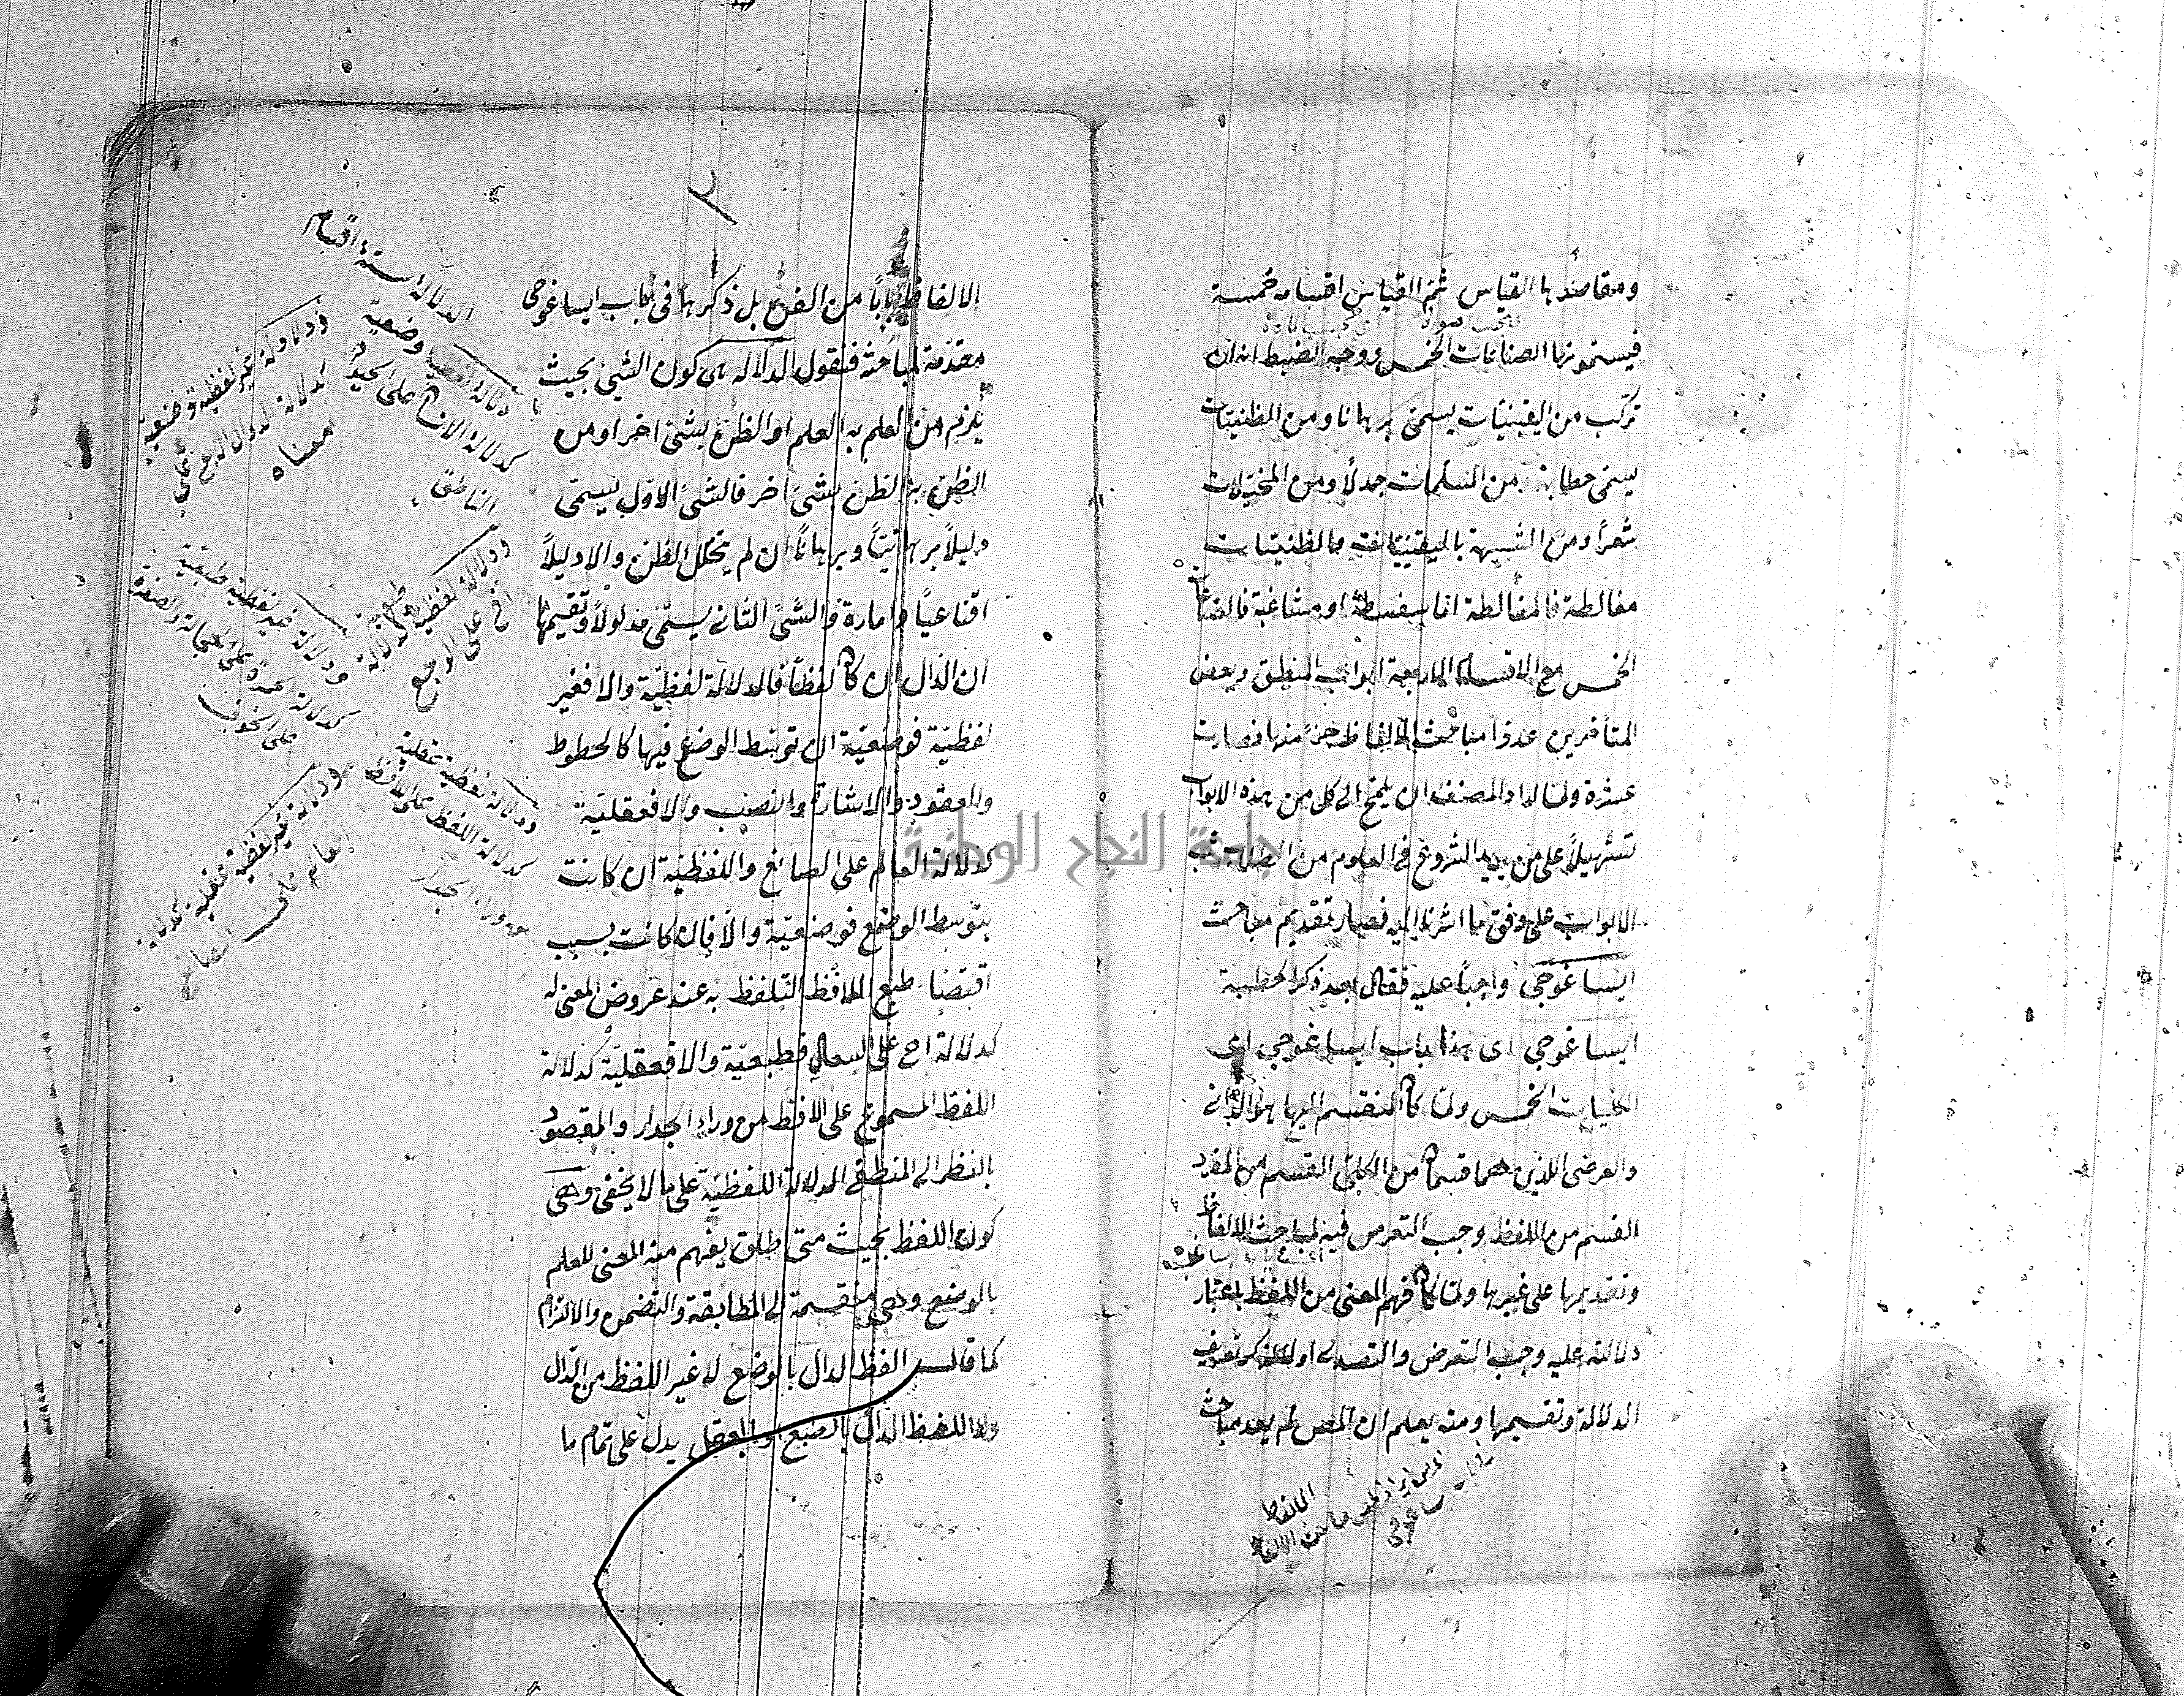 ومقاصدها القياس ثم القياس اقسامه خمسة
فيسمونها الصناعات الخمس ووجه الضبط انه ان
تركب من اليقينيات يسمى برهانا ومن الظنيات
يسمى خطابة ومن المسلمات جدلاً ومن المخيلات
شعراً ومن الشبيهة باليقينيات او بالظنيات
مغالطة فالمغالطة اما سفسطة او مشاغبة فالصناعات
الخمس مع الاقسام الاربعة ابواب المنطق وبعض
المتأخرين عدوا مباحث الالفاظ جزءً منها فصارت
عشرة ولما اراد المصنف ان يلمح الى كل من هذه الابواب
تسهيلاً على من يريد الشروع في العلوم من
الابواب على وفق ما اشرنا اليه فصار تقديم مباحث
ايساغوجي واجباً عليه فقال بعد ذكر الخطبة
ايساغوجي اى هذا باب ايساغوجي اى
الكليات الخمس ولما كا المنقسم اليها هو الذاتي
والعرضى اللذين هما قسما من الكلى القسم من المفرد
القسم من اللفظ وجب التعرض فيه لمباحث الالفاظ
وتقديمها على غيرها ولما كا فهم المعنى من اللفظ باعتبار
دلالته عليه وجب التعرض والتصدى اولا لذكر تعريف
الدلالة وتقسيمها ومنه يعلم ان المص لم يعد مباحث
الالفاظ
٢
الالفاظ باباً من الفن بل ذكرها فى باب ايساغوجى
مقدمة لمباحثه فنقول الدلالة هى كون الشئ بحيث
يلزم من العلم به العلم او الظن بشئ اخر او من
الظن به الظن بشئ اخر فالشئ الاول يسمى
دليلاً برهانيًا وبرهانًا ان لم يتخلل الظن والا دليلاً
اقناعيًا وامارة والشئ الثانى يسمى مدلولاً وتقسيمها
ان الدال ان كا لفظاً فالدلالة لفظية والا فغير
لفظية فوضعية ان توسط الوضع فيها كالخطوط
والعقود والاشارة والنصب والا فعقلية
كدلالة العالم على الصانع واللفظية ان كانت
بتوسط الوضع فوضعية والا فان كانت بسبب
اقتضا طبع اللافظ التلفظ به عند عروض المعنى له
كدلالة اح على السعال فطبعية والا فعقلية كدلالة
اللفظ المسموع على اللافظ من وراء الجدار والمقصود
بالنظر الى المنطقى الدلالة اللفظية على ما لا يخفى وهى
كون اللفظ بحيث متى اطلق يفهم منه المعنى للعلم
بالوضع وهى منقسمة الى المطابقة والتضمن والالتزام
كما قال اللفظ الدال بالوضع لا غير اللفظ من الدال
ولا اللفظ الدال بالطبع او بالعقل يدل على تمام ما
الدلالة ستة اقسام
دلالة لفظية وضعية
كدلالة الانسان على الحيوان
الناطق
ودلالة غير لفظية وضعية
كدلالة الدوال الاربع على
معناه
ودلالة لفظية طبيعية كدلالة
اح على الوجع
ودلالة غير لفظية طبيعية
كدلالة الحمرة على الخجالة والصفرة
على الخوف
ودلالة لفظية عقلية
كدلالة اللفظ على اللافظ
من وراء الجدار
ودلالة غير لفظية عقلية كدلالة
العالم على الصانع
جامعة النجاح الوطنية